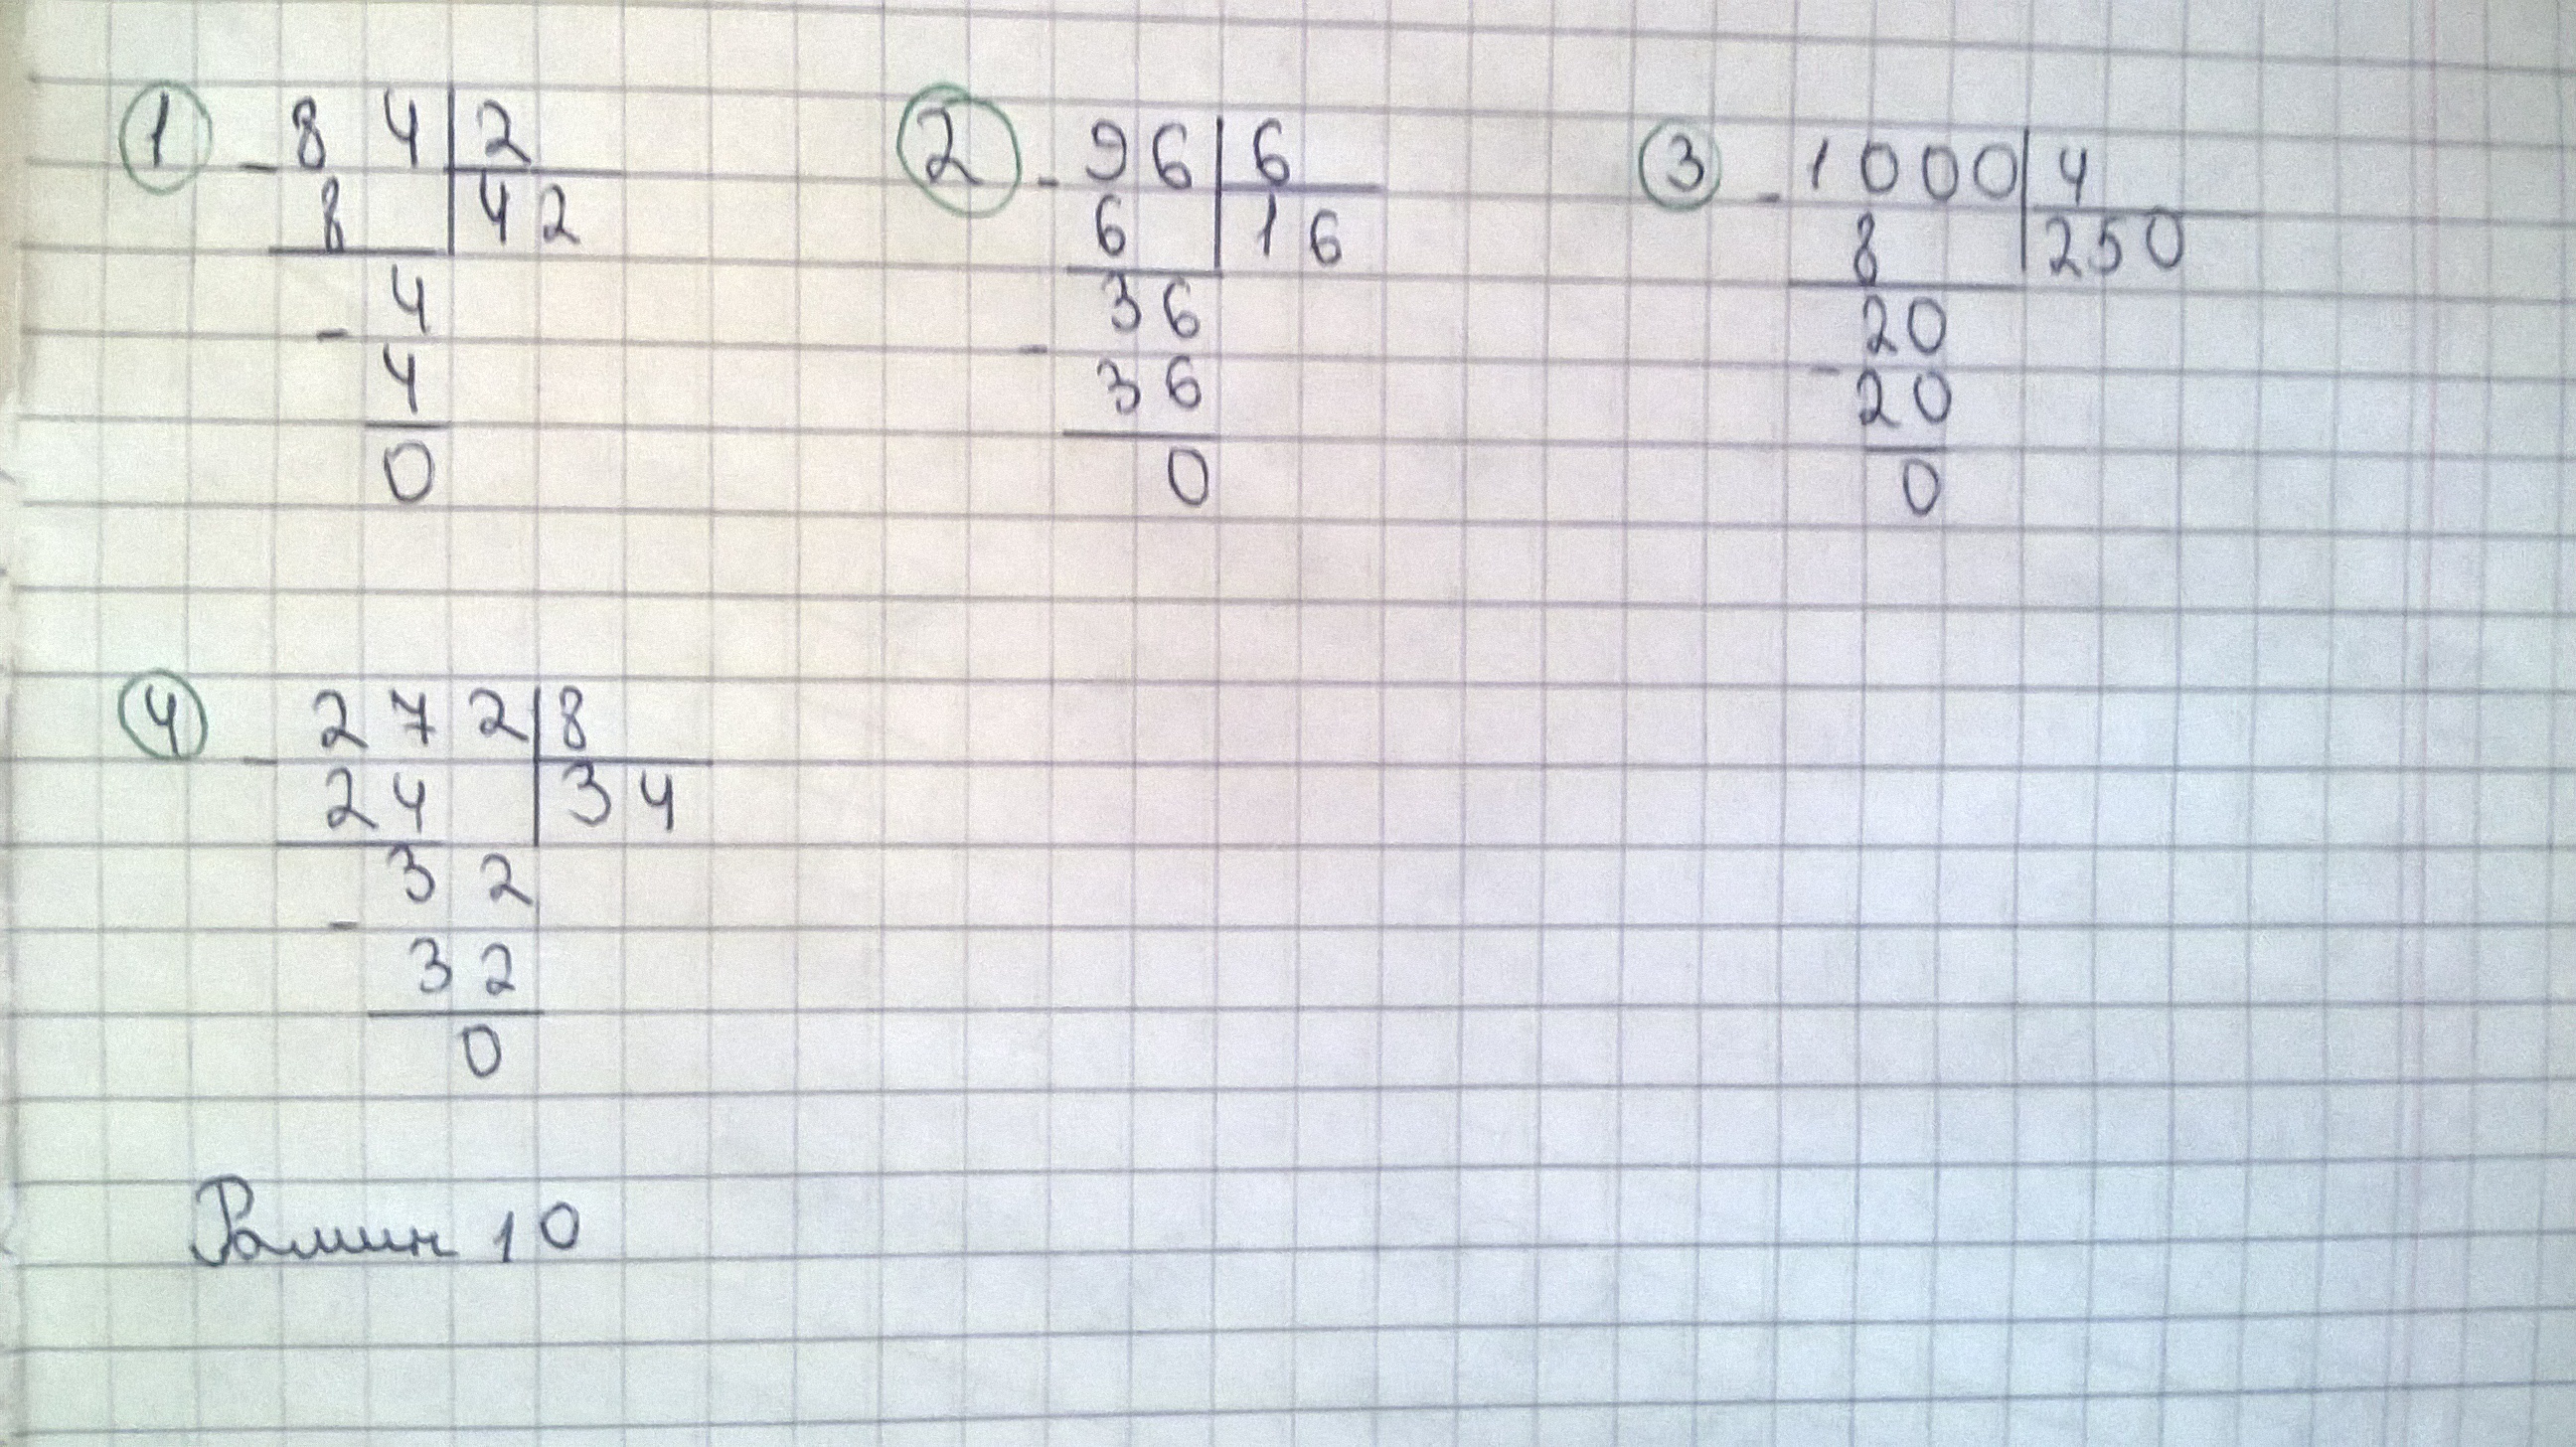 1
- 84 | 2
8 | 42
4
- 4
0
2
- 96 | 6
6 | 16
36
- 36
0
3
- 1000 | 4
8 | 250
20
- 20
0
4
- 272 | 8
24 | 34
32
- 32
0
Рамин 10